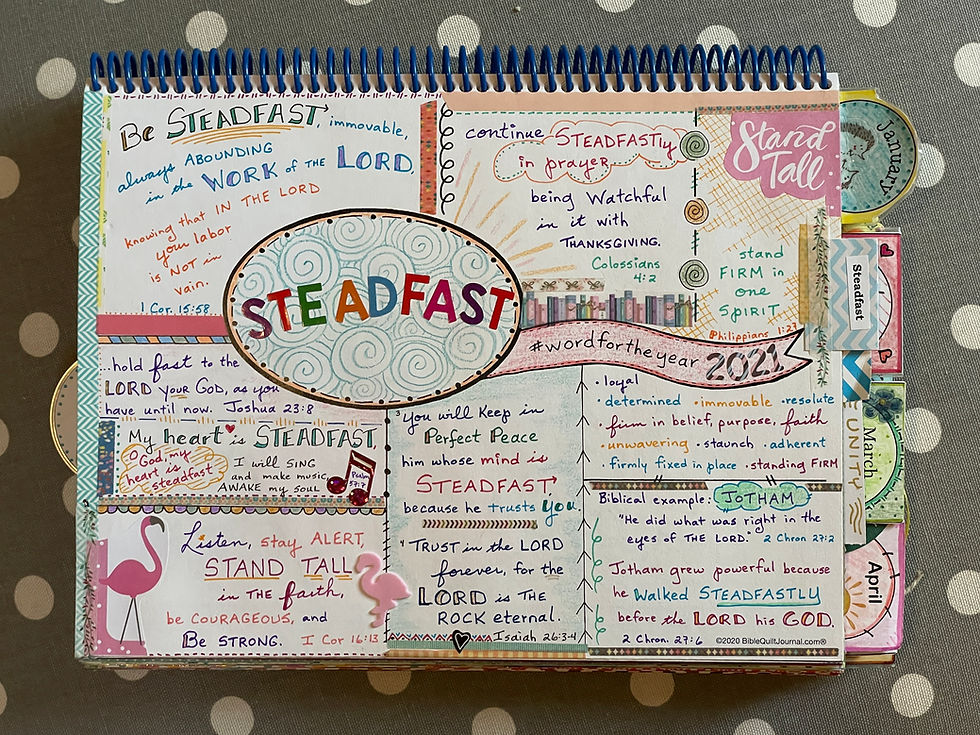 Be STEADFAST, immovable,
always ABOUNDING
in the WORK of THE LORD,
knowing that IN THE LORD
your labor
is NOT in
vain.
1 Cor. 15:58
continue STEADFASTly
in prayer
being Watchful
in it with
THANKSGIVING.
Colossians
4:2
Stand
Tall
stand
FIRM in
one
SPIRIT
Philippians 1:27
STEADFAST
#wordfortheyear 2021
...hold fast to the
LORD your GOD, as you
have until now. Joshua 23:8
My heart is STEADFAST,
O God, my
heart is
steadfast
I will SING
and make music
AWAKE my soul
Psalm
57:7
Listen, stay ALERT,
STAND TALL
in THE faith,
be COURAGEOUS, and
BE STRONG. I Cor 16:13
3 You will Keep in
Perfect Peace
him whose mind is
STEADFAST,
because he trusts You.
4 TRUST in the LORD
forever, for the
LORD is THE
ROCK eternal.
Isaiah 26:3-4
• loyal
• determined • immovable • resolute
• firm in belief, purpose, faith
• unwavering • staunch • adherent
• firmly fixed in place • standing FIRM
Biblical example: JOTHAM
"He did what was right in the
eyes of THE LORD." 2 Chron 27:2
Jotham grew powerful because
he walked STEADFASTLY
before the LORD his GOD.
2 Chron. 27:6
©2020 BibleQuiltJournal.com®
January
Steadfast
March
UNITY
April